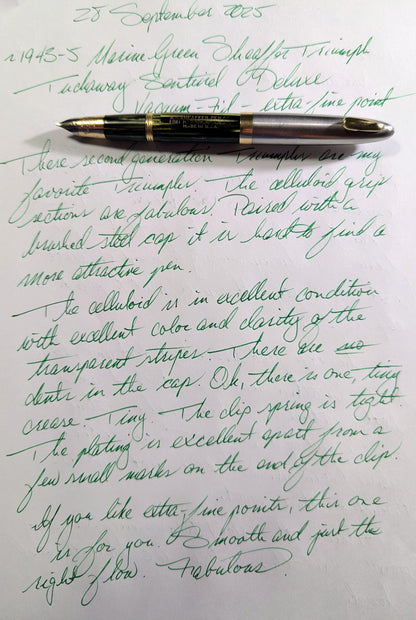 25 September 2025
~1943-5 Marine Green Sheaffer Triumph
Tuckaway Sentinel Deluxe
Vacuum-Fil - extra-fine point
These second generation Triumphs are my
favorite Triumphs. The celluloid grip
sections are fabulous. Paired with a
brushed steel cap it is hard to find a
more attractive pen.
The celluloid is in excellent condition
with excellent color and clarity of the
transparent stripes. There are no
dents in the cap. Ok, there is one, tiny
crease. Tiny. The clip spring is tight.
The plating is excellent apart from a
few small marks on the end of the clip.
If you like extra-fine points, this one
is for you. Smooth and just the
right flow. Fabulous.